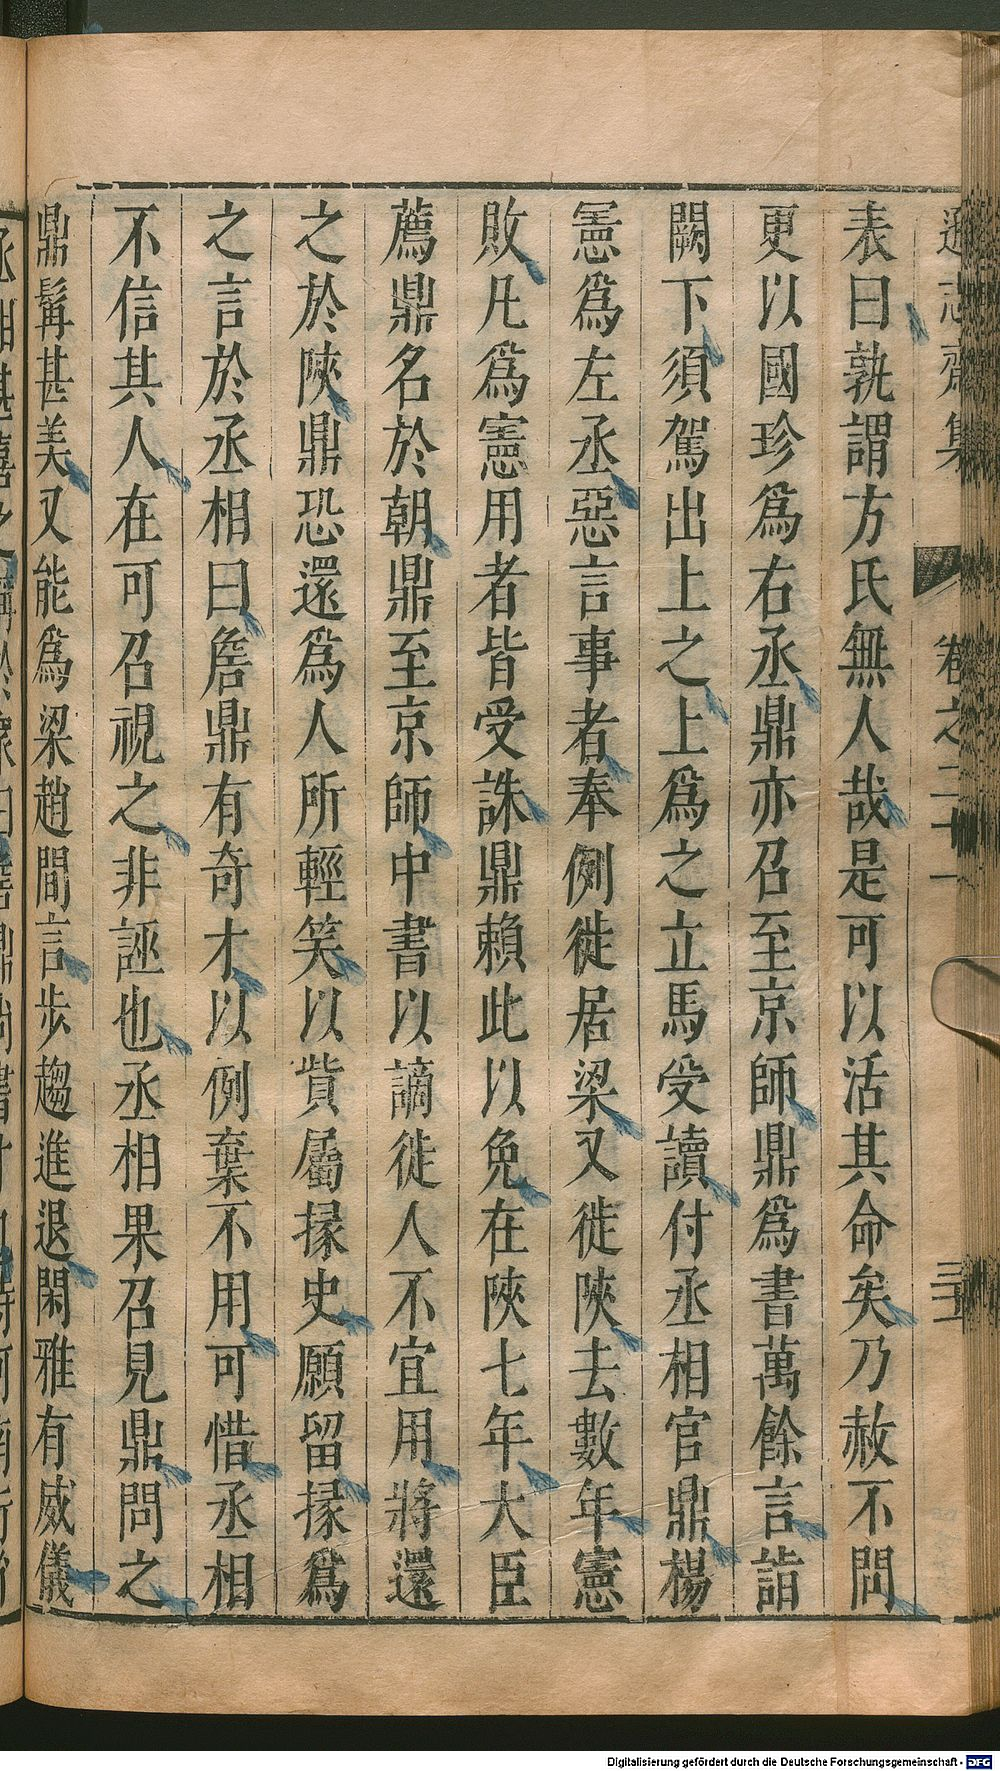 遜志齋集 卷之二十一 三十五
表曰孰謂方氏無人哉是可以活其命矣乃赦不問
更以國珍爲右丞鼎亦召至京師鼎爲書萬餘言詣
闕下須駕出上之上爲之立馬受讀付丞相官鼎楊
憲爲左丞惡言事者奉例徙居梁又徙陝去數年憲
敗凡爲憲用者皆受誅鼎賴此以免在陝七年大臣
薦鼎名於朝鼎至京師中書以謫徙人不宜用將還
之於陝鼎恐還爲人所輕笑以貲屬掾史願留掾爲
之言於丞相曰詹鼎有奇才以例棄不用可惜丞相
不信其人在可召視之非誣也丞相果召見鼎問之
鼎髯甚美又能爲梁趙間言步趨進退閑雅有威儀